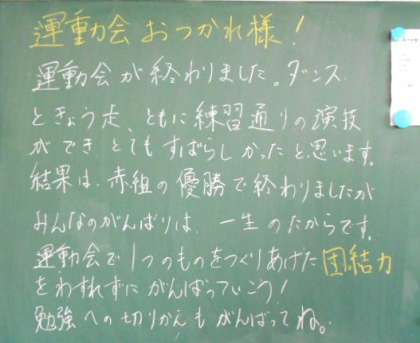 運動会おつかれ様！
運動会が終わりました。ダンス
ときょう走、ともに練習通りの演技
ができ とてもすばらしかったと思います。
結果は、赤組の優勝で終わりましたが
みんなのがんばりは、一生のたからです。
運動会で1つのものをつくりあげた団結力
をわすれずにがんばっていこう！
勉強への切りかえもがんばってね。